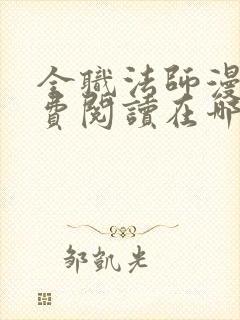 全職法師漫
費閱讀在哪
邹凱光